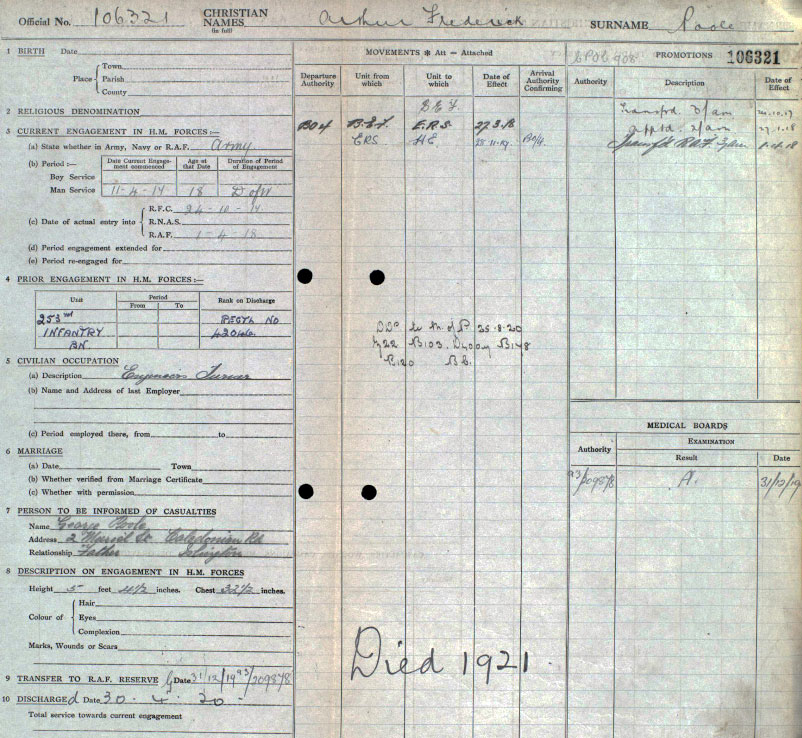 Official No. 106321 CHRISTIAN NAMES (in full) Arthur Frederick SURNAME Poole
1 BIRTH Date
Place Town
Parish
County
2 RELIGIOUS DENOMINATION
3 CURRENT ENGAGEMENT IN H.M. FORCES :—
(a) State whether in Army, Navy or R.A.F. Army
(b) Period :— Date Current Engagement commenced Age at that Date Duration of Period of Engagement
Boy Service
Man Service 11-4-17 18 D of W
(c) Date of actual entry into R.F.C. 24-10-17
R.N.A.S.
R.A.F. 1-4-18
(d) Period engagement extended for
(e) Period re-engaged for
4 PRIOR ENGAGEMENT IN H.M. FORCES :—
Unit Period Rank on Discharge
From To
253rd REGTL NO
INFANTRY 42046
BN
5 CIVILIAN OCCUPATION
(a) Description Engineers Turner
(b) Name and Address of last Employer
(c) Period employed there, from to
6 MARRIAGE
(a) Date Town
(b) Whether verified from Marriage Certificate
(c) Whether with permission
7 PERSON TO BE INFORMED OF CASUALTIES
Name George Poole
Address 2 St. Caledonian Rd
Relationship Father Islington
8 DESCRIPTION ON ENGAGEMENT IN H.M. FORCES
Height 5 feet 4½ inches. Chest 32½ inches.
Colour of Hair
Eyes
Complexion
Marks, Wounds or Scars
9 TRANSFER TO R.A.F. RESERVE G Date 31/12/19 93/209878
10 DISCHARGEd Date 30-4-20-
Total service towards current engagement
MOVEMENTS * Att — Attached
Departure Authority Unit from which Unit to which Date of Effect Arrival Authority Confirming
B.E.F.
BO4 B.E.F. E.R.S. 27.3.18
ERS HE
25.8.20
G22 B103. B148
B120
Died 1921.
PROMOTIONS 106321
Authority Description Date of Effect
Transfrd. 3/am 24.10.17
appld. 2/am 27.1.18
Transf'd RAF 1.4.18
MEDICAL BOARDS
Authority EXAMINATION
Result Date
93/209878 A. 31/12/19